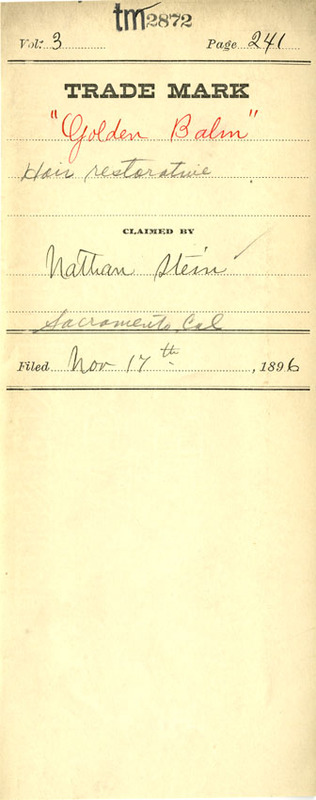 tm2872
Vol: 3 Page 241
TRADE MARK
"Golden Balm"
Hair restorative
CLAIMED BY
Nathan Stein
Sacramento, Cal
Filed Nov 17th, 1896